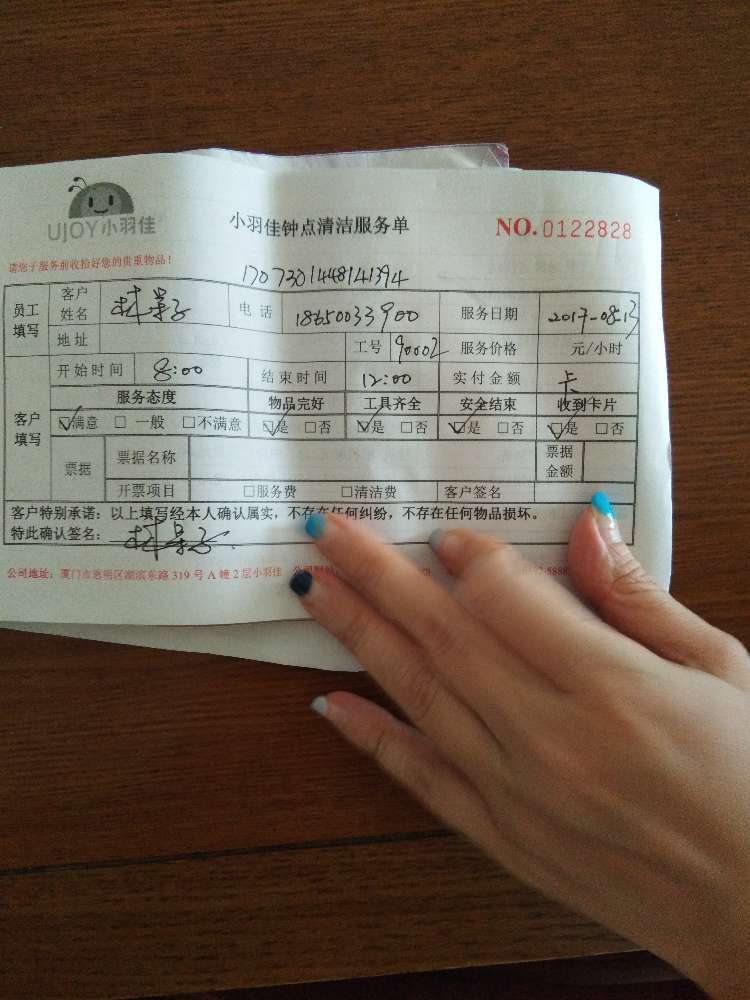 UJOY小羽佳
小羽佳钟点清洁服务单
NO.0122828
请您于服务前收拾好您的贵重物品!
1707301448141394
员工填写 客户姓名 林 子 电话 18650033900 服务日期 2017-08-13
地址 工号 90002 服务价格 元/小时
客户填写 开始时间 8:00 结束时间 12:00 实付金额 卡
服务态度 物品完好 工具齐全 安全结束 收到卡片
☑满意 □一般 □不满意 ☑是 □否 ☑是 □否 ☑是 □否 ☑是 □否
票据 票据名称 票据金额
开票项目 □服务费 □清洁费 客户签名
客户特别承诺:以上填写经本人确认属实,不存在任何纠纷,不存在任何物品损坏。
特此确认签名: 林 子
公司地址:厦门市思明区湖滨东路 319 号 A 幢 2 层小羽佳